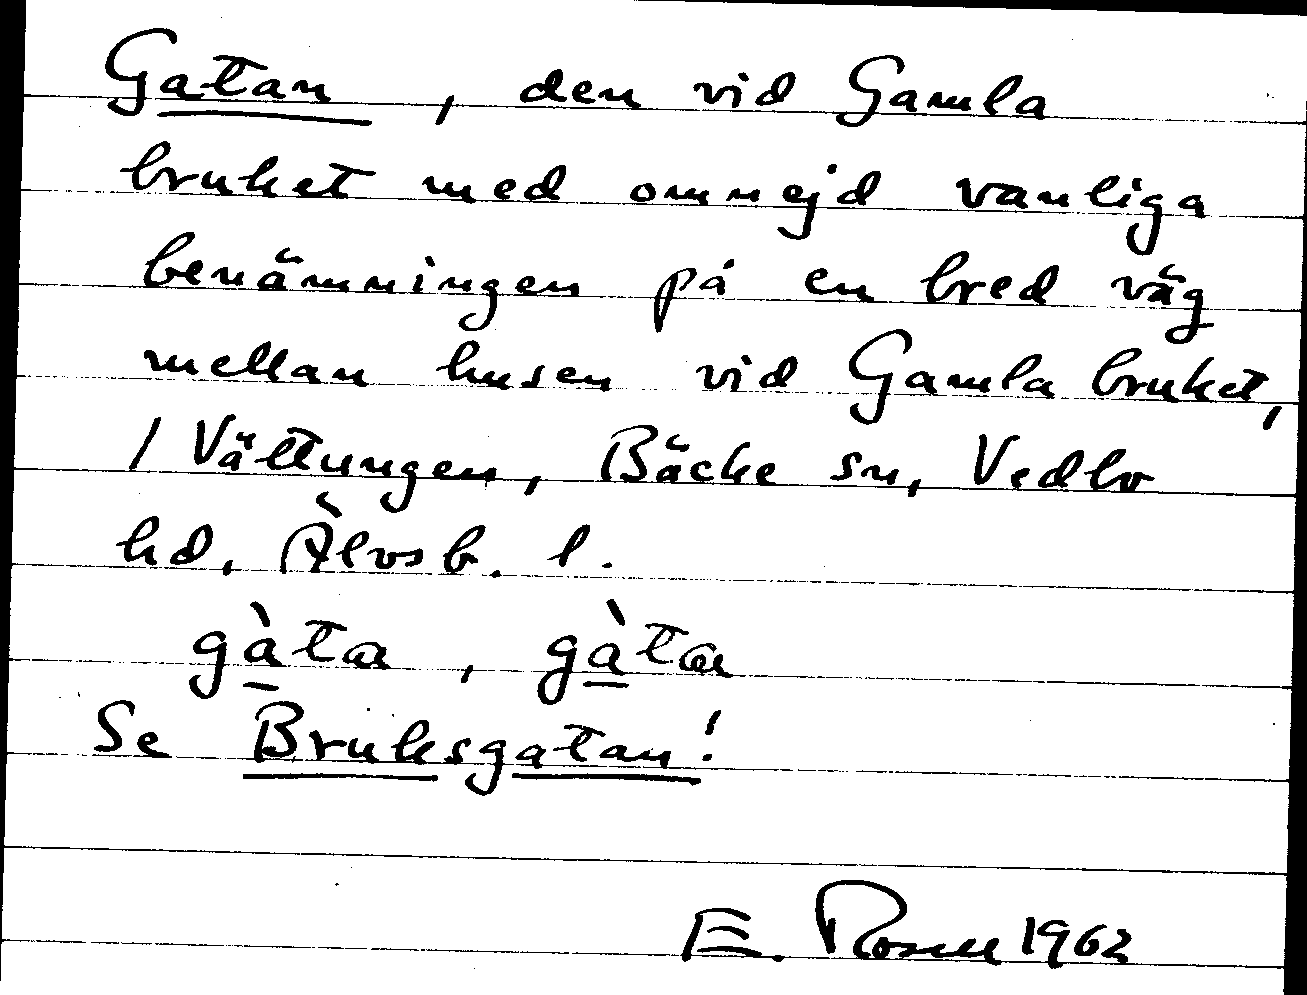 Gatan, den vid Gamla
bruket med omnejd vanliga
benämningen på en bred väg
mellan husen vid Gamla bruket,
/ Vättungen, Bäcke sn, Vedbo
hd, Älvsb. l.
gàta, gàta
Se Bruksgatan!
E. Rosell 1962